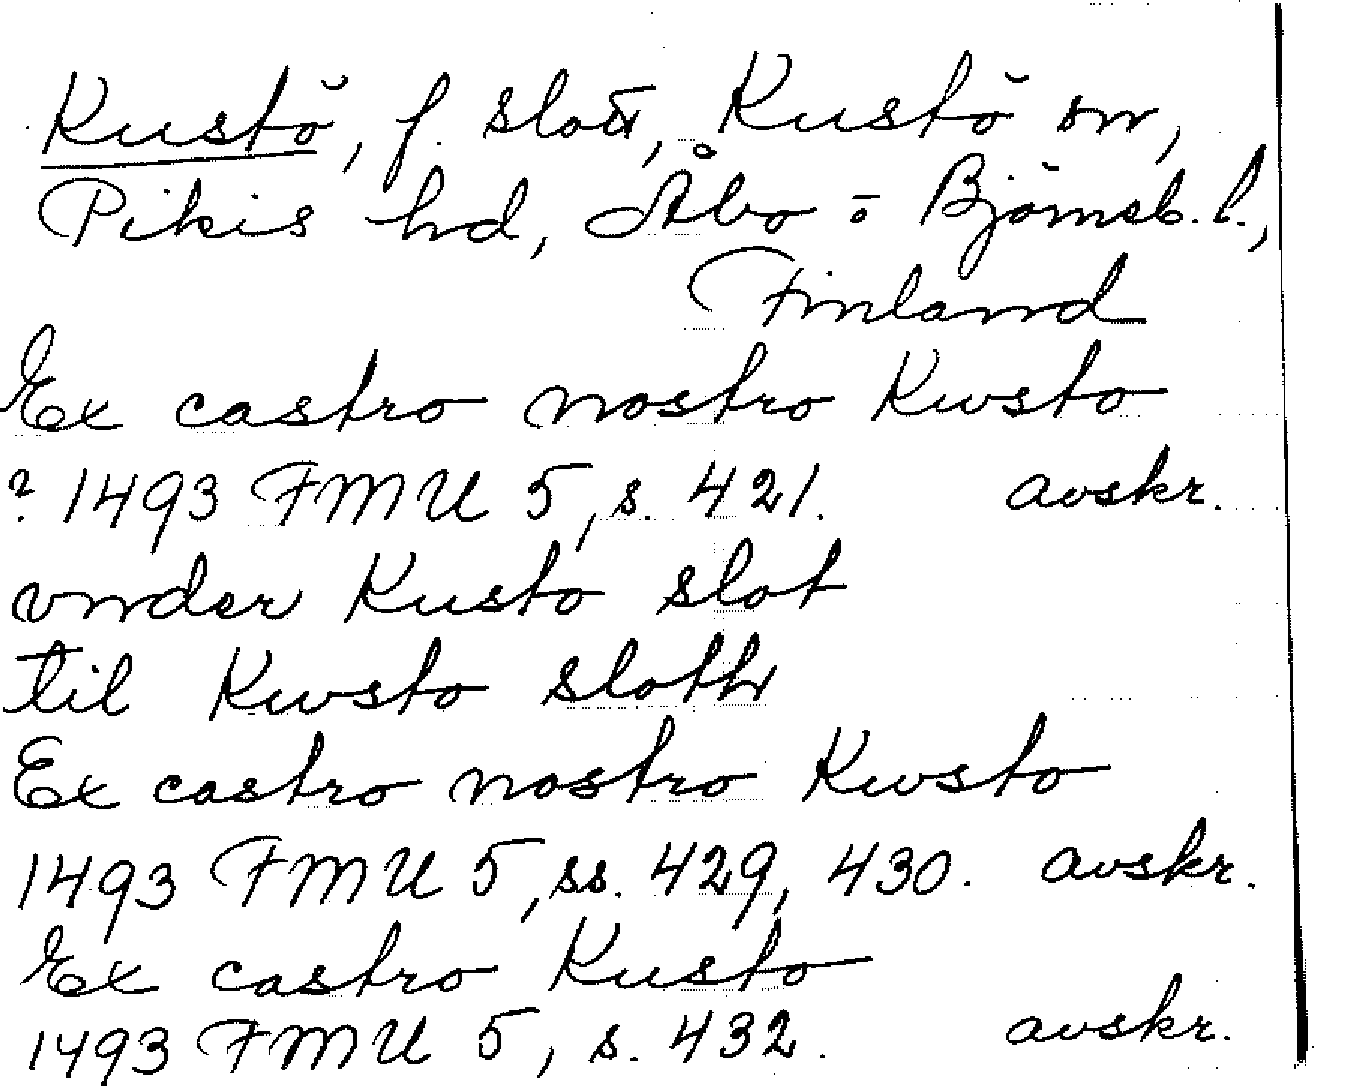 Kustö, f. slott, Kustö sn,
Pikis hd, Åbo o Björneb. l.,
Finland
Ex castro nostro Kwsto
? 1493 FMU 5, s. 421. avskr.
vnder Kusto slot
til Kwsto sloth
Ex castro nostro Kwsto
1493 FMU 5, ss. 429, 430. avskr.
Ex castro Kusto
1493 FMU 5, s. 432. avskr.